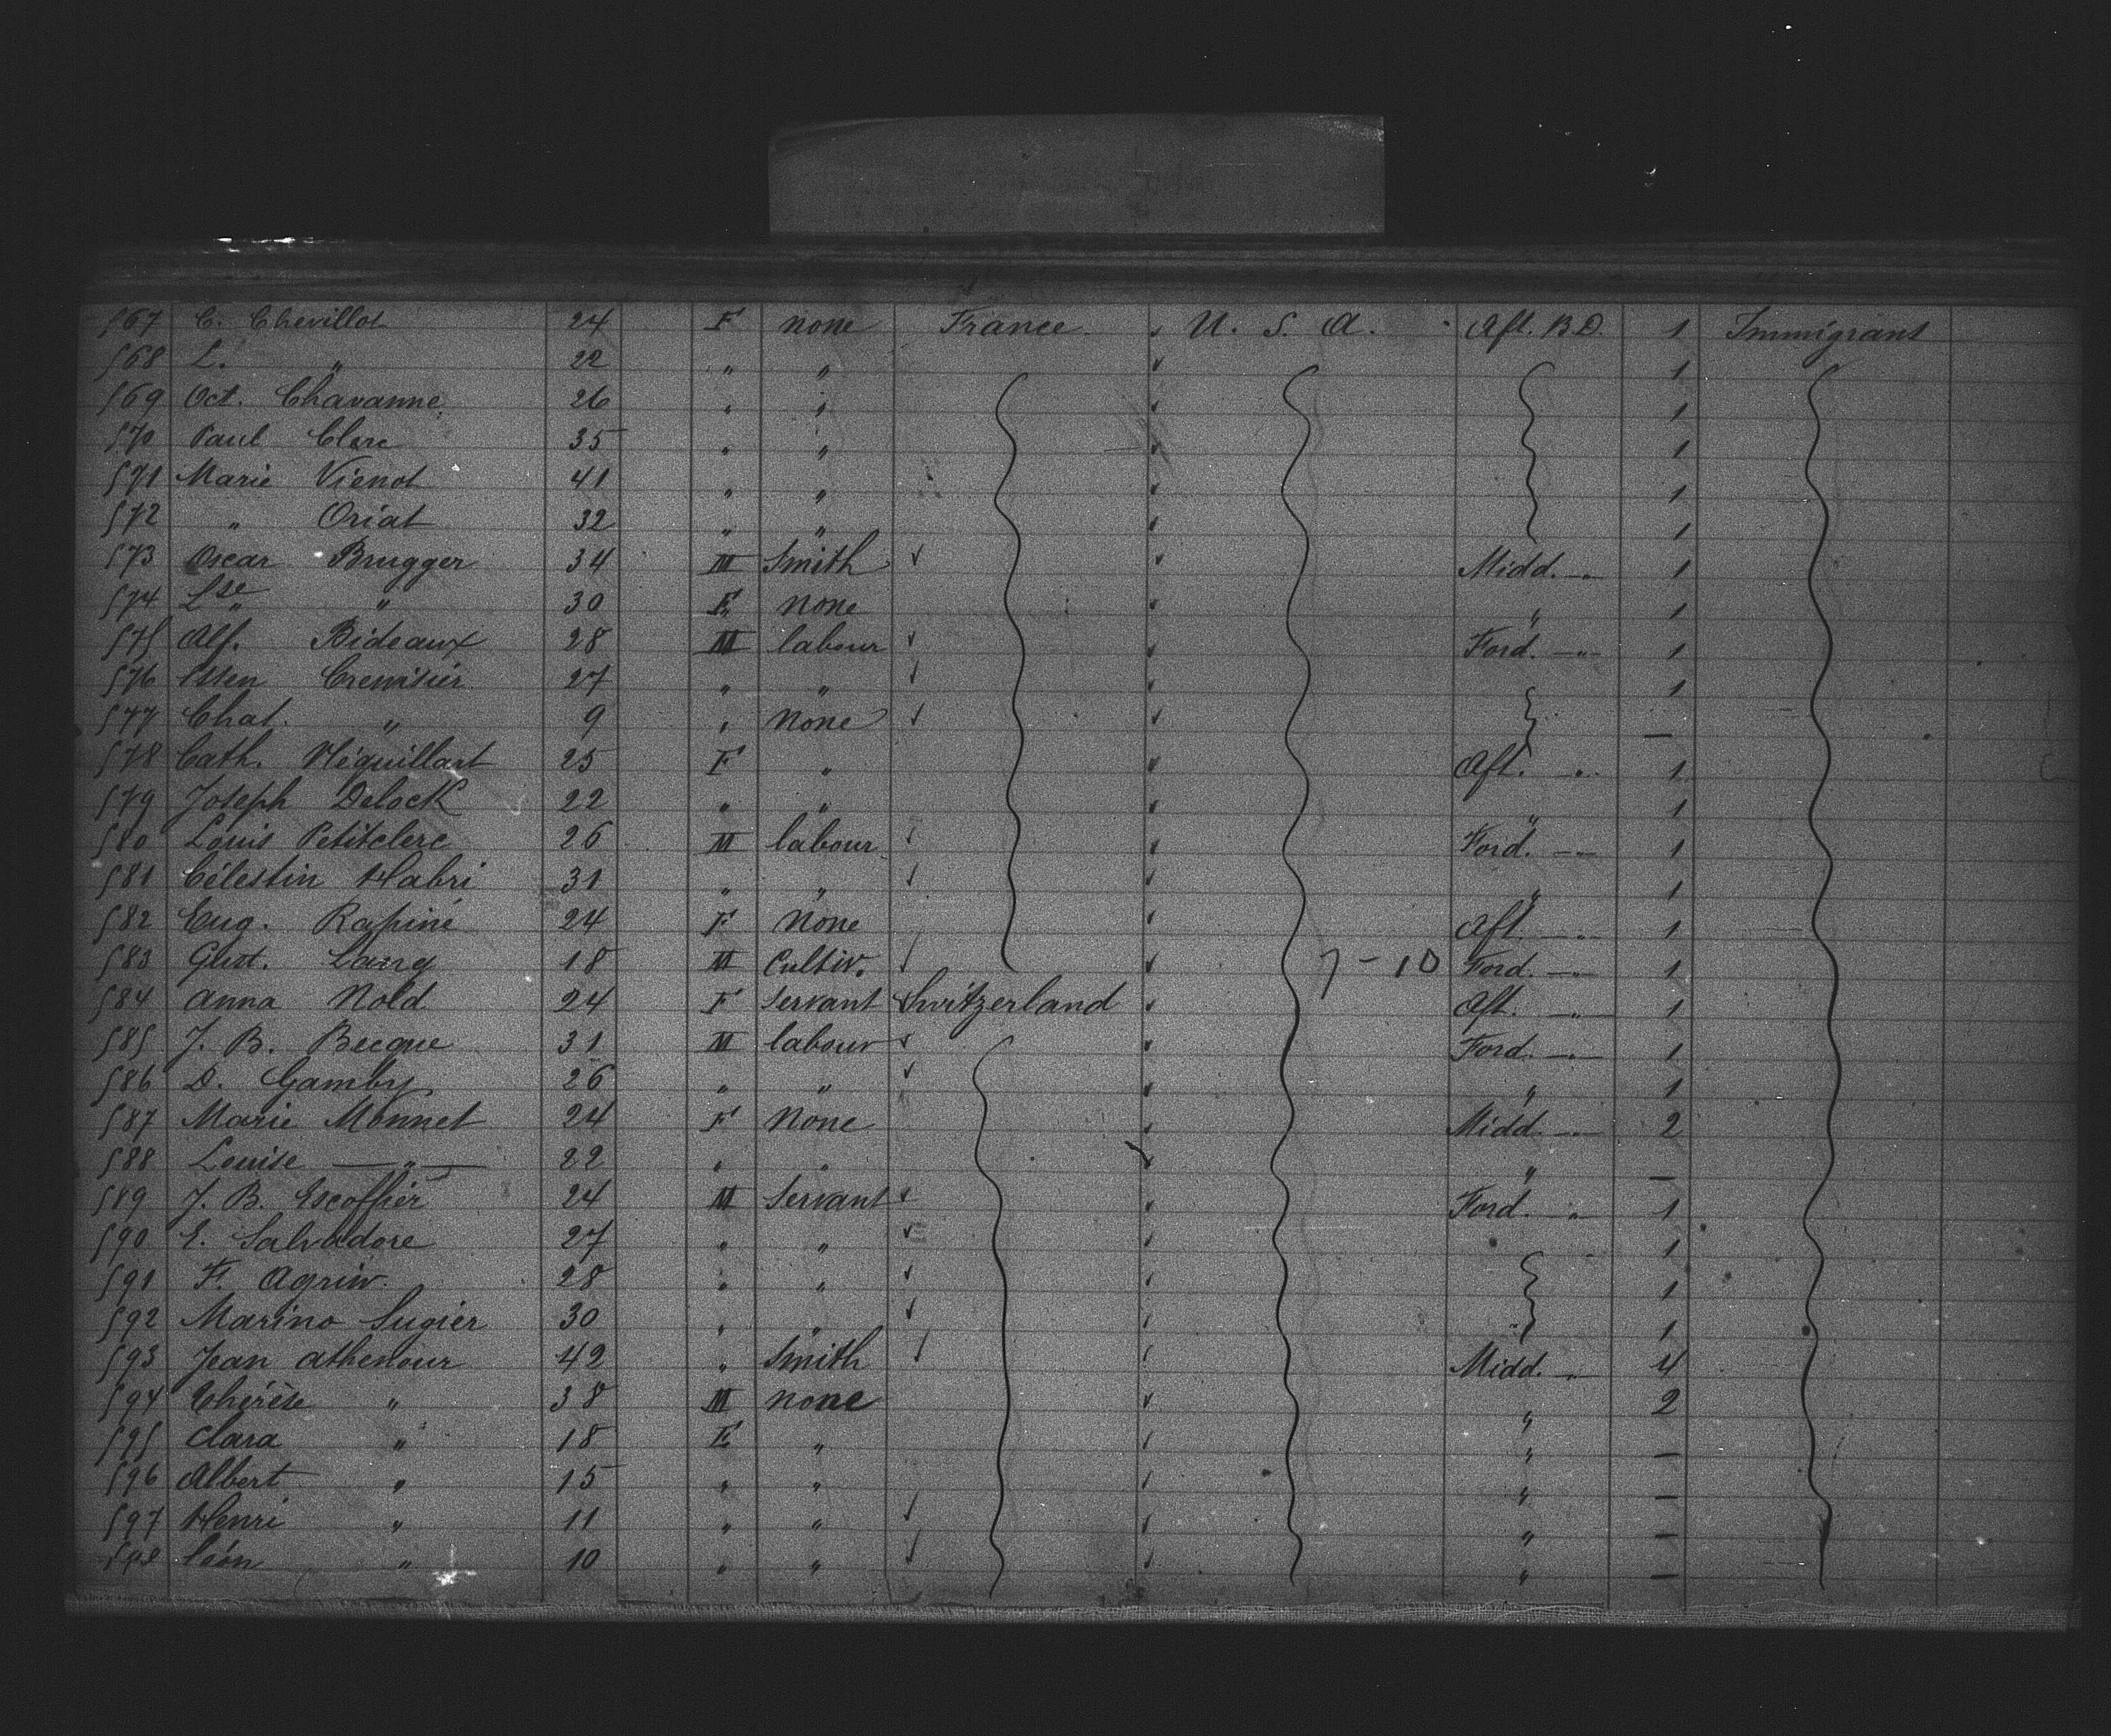 567 C. Chevillot 24 F none France U. S. A. Aft. B.D. 1 Immigrant
568 L. " 22 " " 1
569 Oct. Chavanne 26 " " 1
570 Paul Clerc 35 " " 1
571 Marie Vienot 41 " " 1
572 " Oriat 32 " " 1
573 Oscar Brugger 34 M Smith Midd. " 1
574 Lse " 30 F none " 1
575 Alf. Bideaux 28 M labour Ford. " 1
576 27 " " 1
577 " 9 " none —
578 Cath. Héquillart 25 F " Aft. " 1
579 Joseph Delock 22 " " " 1
580 Louis Petitclerc 26 M labour Ford. " 1
581 Célestin Habri 31 " " " 1
582 Eug. Rapine 24 F none Aft. " 1
583 Gust. Lang 18 M Cultiv. 7-10 Ford. " 1
584 Anna Nold 24 F Servant Switzerland Aft. " 1
585 J. B. Becque 31 M labour Ford. " 1
586 D. Gamby 26 " " " 1
587 Marie Monnet 24 F None Midd. " 2
588 Louise " 22 " " " —
589 J. B. Escoffier 24 M Servant Ford. " 1
590 E. Salvadore 27 " " 1
591 F. Agriw. 28 " " 1
592 Marino Sugier 30 " " 1
593 Jean Athenour 42 " Smith Midd. " 4
594 Thérèse " 38 M none " 2
595 Clara " 18 F " " —
596 Albert " 15 " " " —
597 Henri " 11 " " " —
598 Léon " 10 " " " —